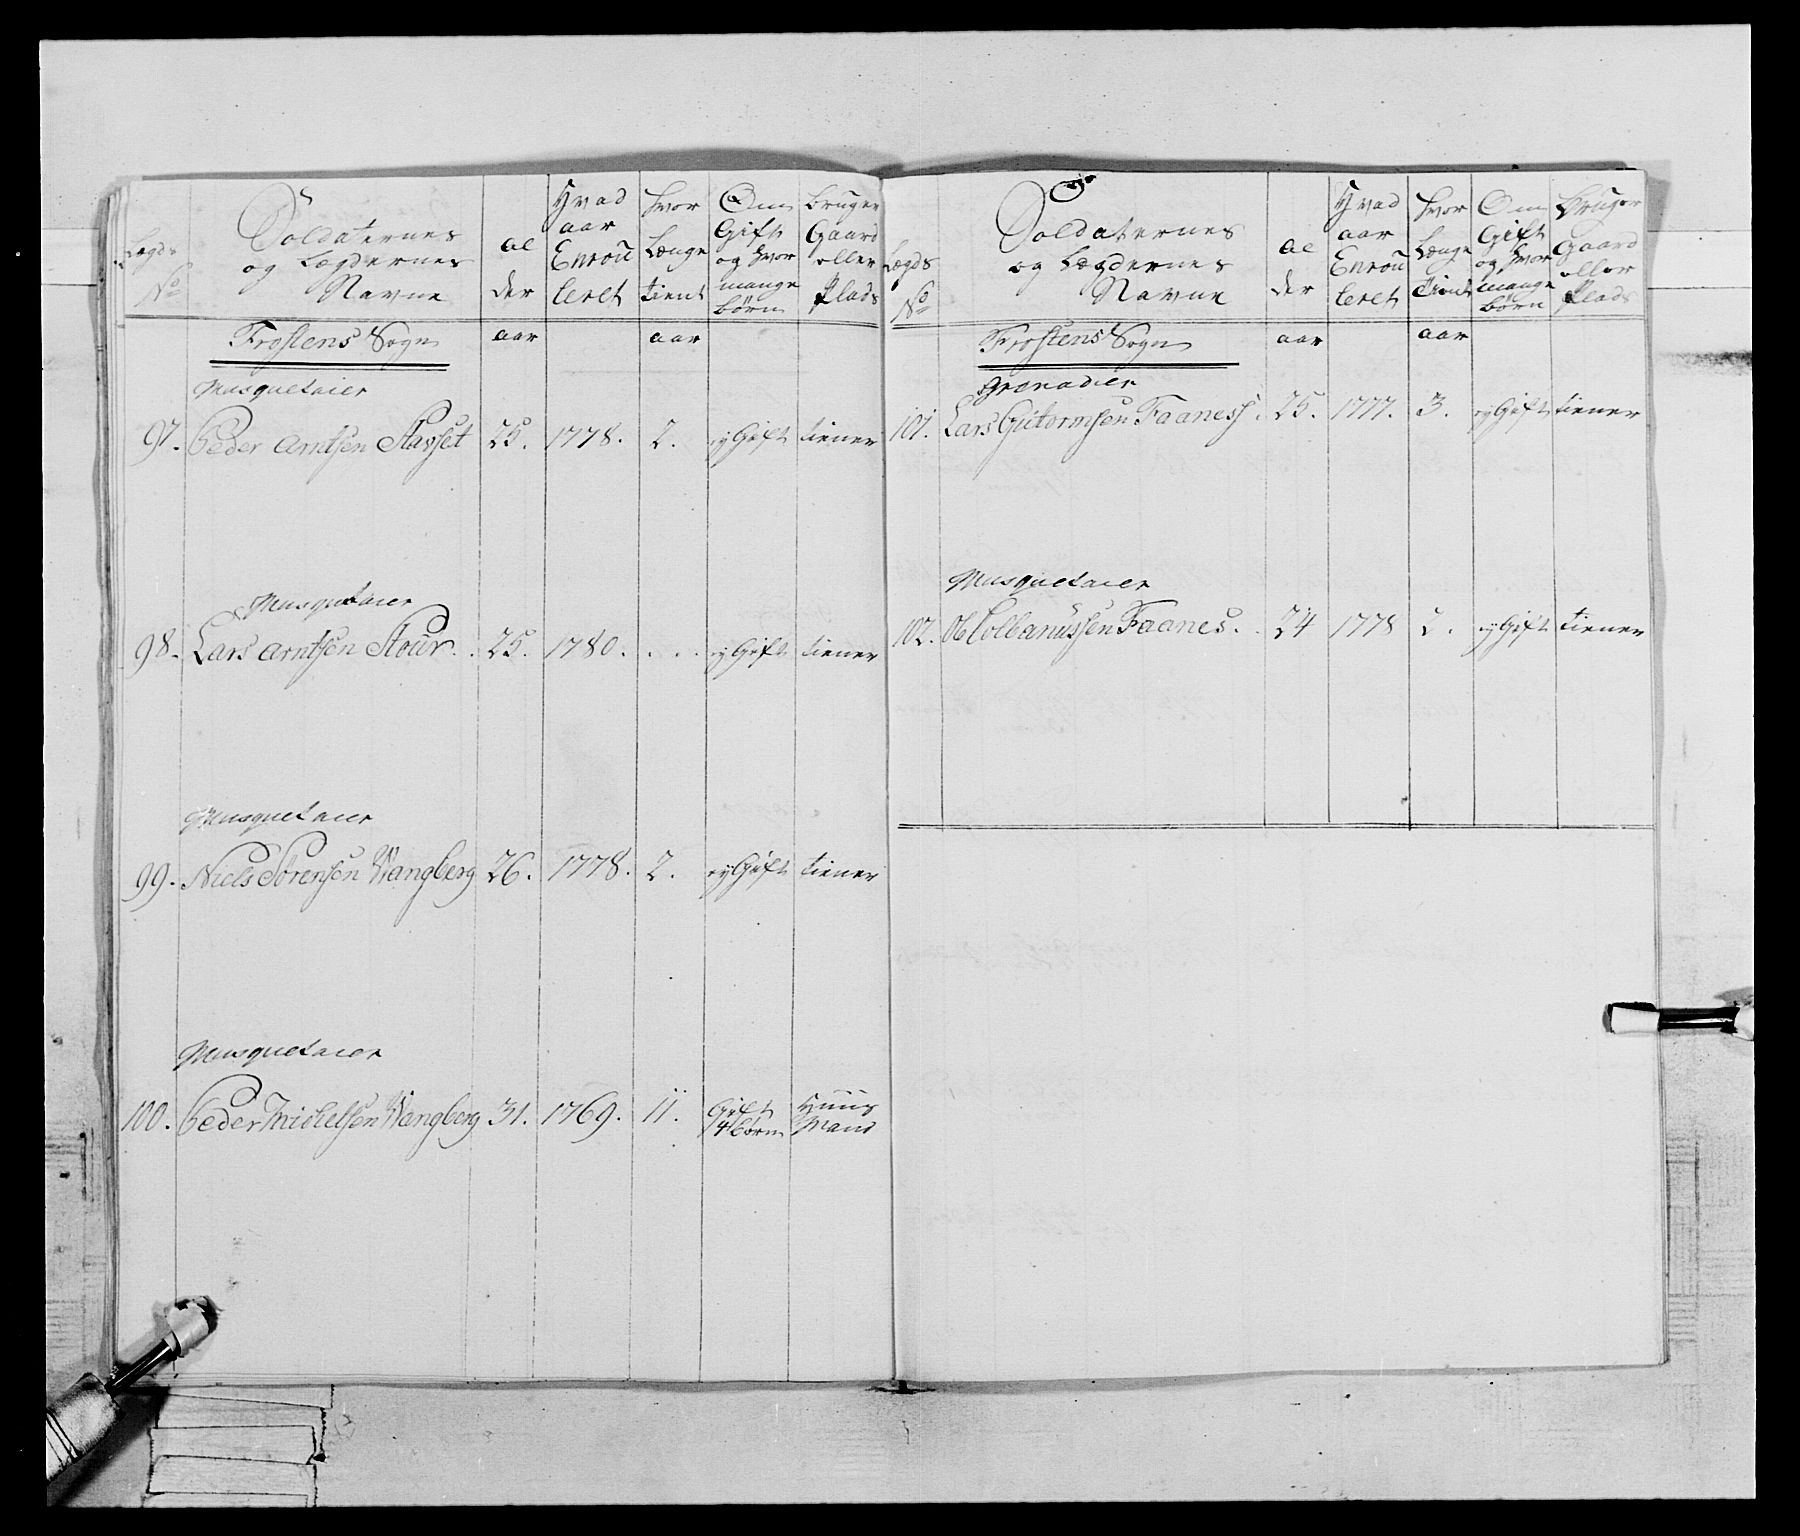 Lægds No
Soldaternes og Lægdernes Navne
Al der
Hvad aar Enroulleret
Hvor Længe tient
Om Gift og Hvor mange börn
Bruger Gaard eller Plads
Frostens Sogn aar aar
Musquetaier
97. Peder Arntsen Stavset 25. 1778. 2. ey Gift tiener
Musquetaier
98. Lars Arntsen Stour . . 25. 1780. . . . ey Gift tiener
Musquetaier
99. Niels Sörensen Wangberg 26. 1778. 2. ey Gift tiener
Musquetaier
100. Peder Michelsen Wangberg 31. 1769. 11. Gift 4 börn Huus Mand
Lægds No
Soldaternes og Lægdernes Navne
Al der
Hvad aar Enroulleret
Hvor Længe tient
Om Gift og Hvor mange börn
Bruger Gaard eller Plads
Frostens Sogn aar aar
Grenadier
101. Lars Gutormsen Faaness. 25. 1777. 3. ey Gift tiener
Musquetaier
102. Ole Faanes. . 24 1778 2. ey Gift tiener